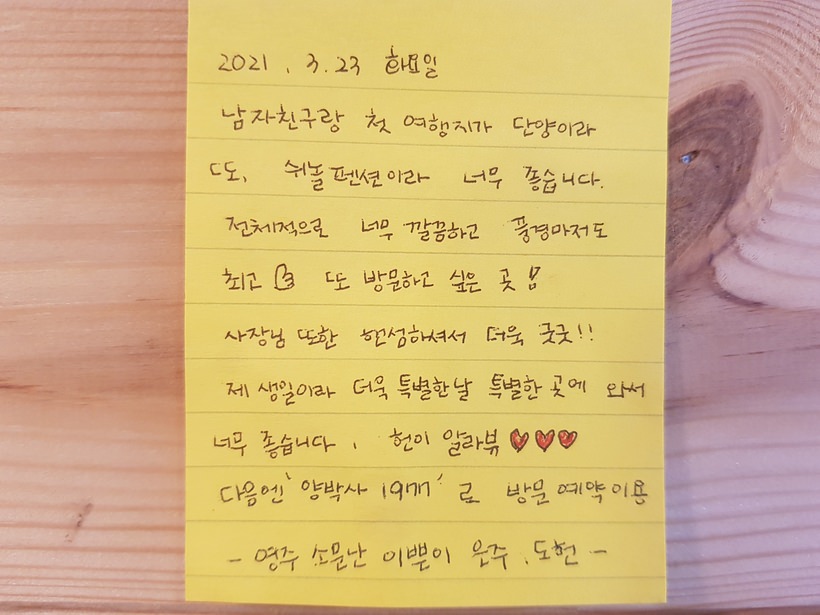 2021. 3.23 화요일
남자친구랑 첫 여행지가 단양이라
또, 쉬놀펜션이라 너무 좋습니다.
전체적으로 너무 깔끔하고 풍경마저도
최고 또 방문하고 싶은 곳!
사장님 또한 훈섬하셔서 더욱 굿굿!!
제 생일이라 더욱 특별한날 특별한 곳에 와서
너무 좋습니다. 헌이 알라뷰 ♥♥♥
다음엔 '양박사 19개' 로 방문예약이용
- 영주 소문난 이쁜이 은주, 도헌 -